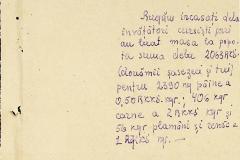 Rugăm încasați dela
învățători cursiști cari
au luat masa la popo-
ta suma de lei 2063 RKS.
(douămii șasezeci și trei)
pentru 2390 kg pâine a
0,50 RKKS. kgr.; 406 kgr.
carne a 2 RKKS kgr și
56 kgr plămâni și
1 RKKS kgr. —